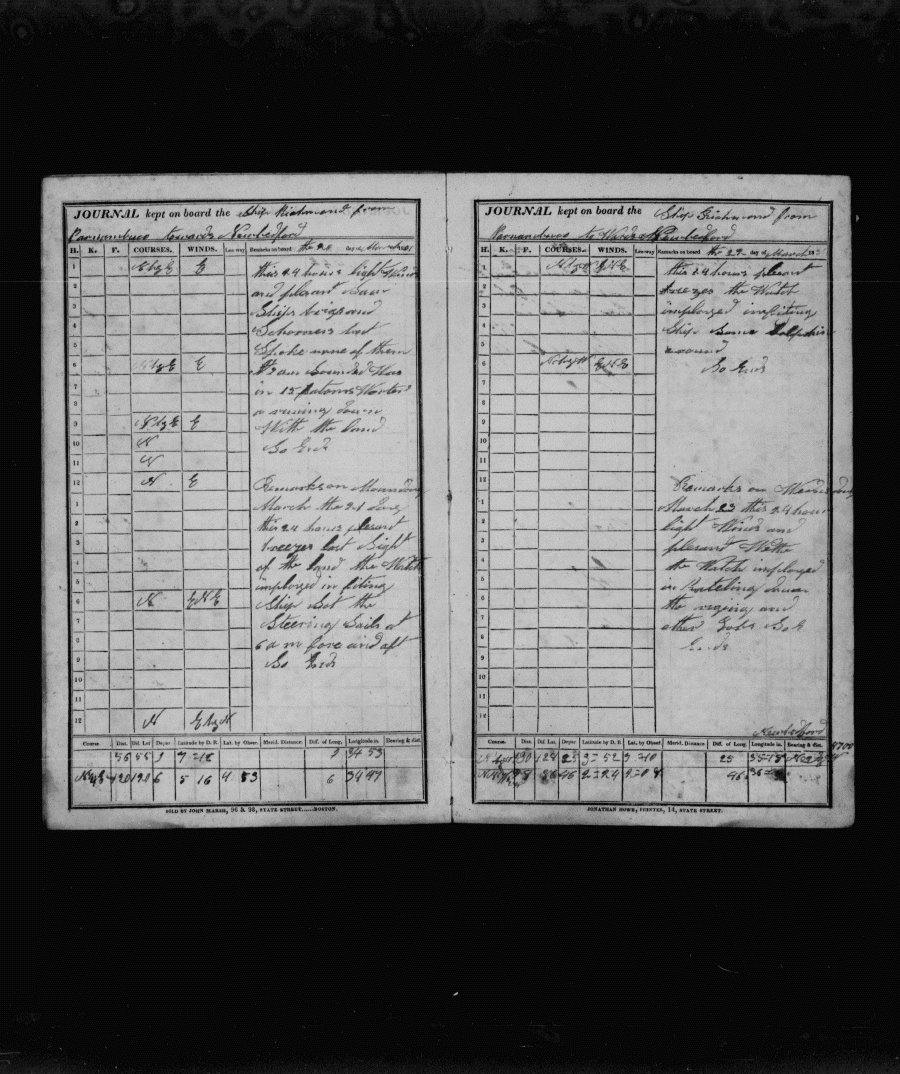 JOURNAL kept on board the Ship Richmond from
Parnambuco towards Newbedford
H. K. F. COURSES. WINDS. Lee way. Remarks on board the 20 day of March
1 N by E E this 24 hours light Winds
2 and plesant Saw
3 Ships brigs and
4 Schooners but
5 Spoke none of them
6 N by E E At 3 am Sounded Was
7 in 15 fatoms Worter
8 a runing down
9 N by E E With the land
10 N So Ends
11 N
12 N E Remarks on Mounday
1 March the 21 day
2 this 24 hours plesant
3 breezes lost Sight
4 of the land the Watch
5 imployed in fiting
6 N E N E Ship Set the
7 Steering Sails at
8 6 a m fore and aft
9 So Ends
10
11
12 N E by N
Course. Dist. Dif. Lat Depar Latitude by D. R. Lat. by Obser. Merid. Distance. Dif. of Long. Longitude in. Bearing & dist.
56 55 9 7=16 9 34 53
120 120 6 5 16 4 53 6 34 47
SOLD BY JOHN MARSH, 96 & 98, STATE STREET......BOSTON.
JOURNAL kept on board the Ship Richmond from
Parnambuco to Wards Newbedford
H. K. F. COURSES. WINDS. Lee way Remarks on board the 22 day of March 183
1 E N E this 24 hours plesant
2 breezes the Watch
3 imployed in fiting
4 Ship Some
5 around
6 N by W E N E So Ends
7
8
9
10
11
12 Remarks on
1 March 23 this 24 hours
2 light Winds and
3 plesant Wethe
4 the Watch imployed
5 in Ratteling down
6 the riging and
7 other Gobs So
8 Ends
9
10
11
12
Newbedford
Course. Dist. Dif. Lat Depar Latitude by D. R. Lat. by Obser Merid. Distance Dif. of Long. Longitude in. Bearing & dist.
130 128 25 25
46 2=24 46
JONATHAN HOWE, PRINTER, 14, STATE STREET.